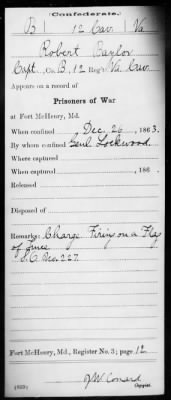 (Confederate.)
B 12 Cav. Va
Robert Baylor
Capt., Co. B, 12 Reg't Va. Cav.
Appears on a record of
Prisoners of War
at Fort McHenry, Md.
When confined Dec. 26, 1863.
By whom confined Genl. Lockwood.
Where captured
When captured , 186 .
Released
Disposed of
Remarks: Charge Firing on a Flag
of Truce
No. 227.
Fort McHenry, Md., Register No. 3; page 12
J W Conard
(639) Copyist.